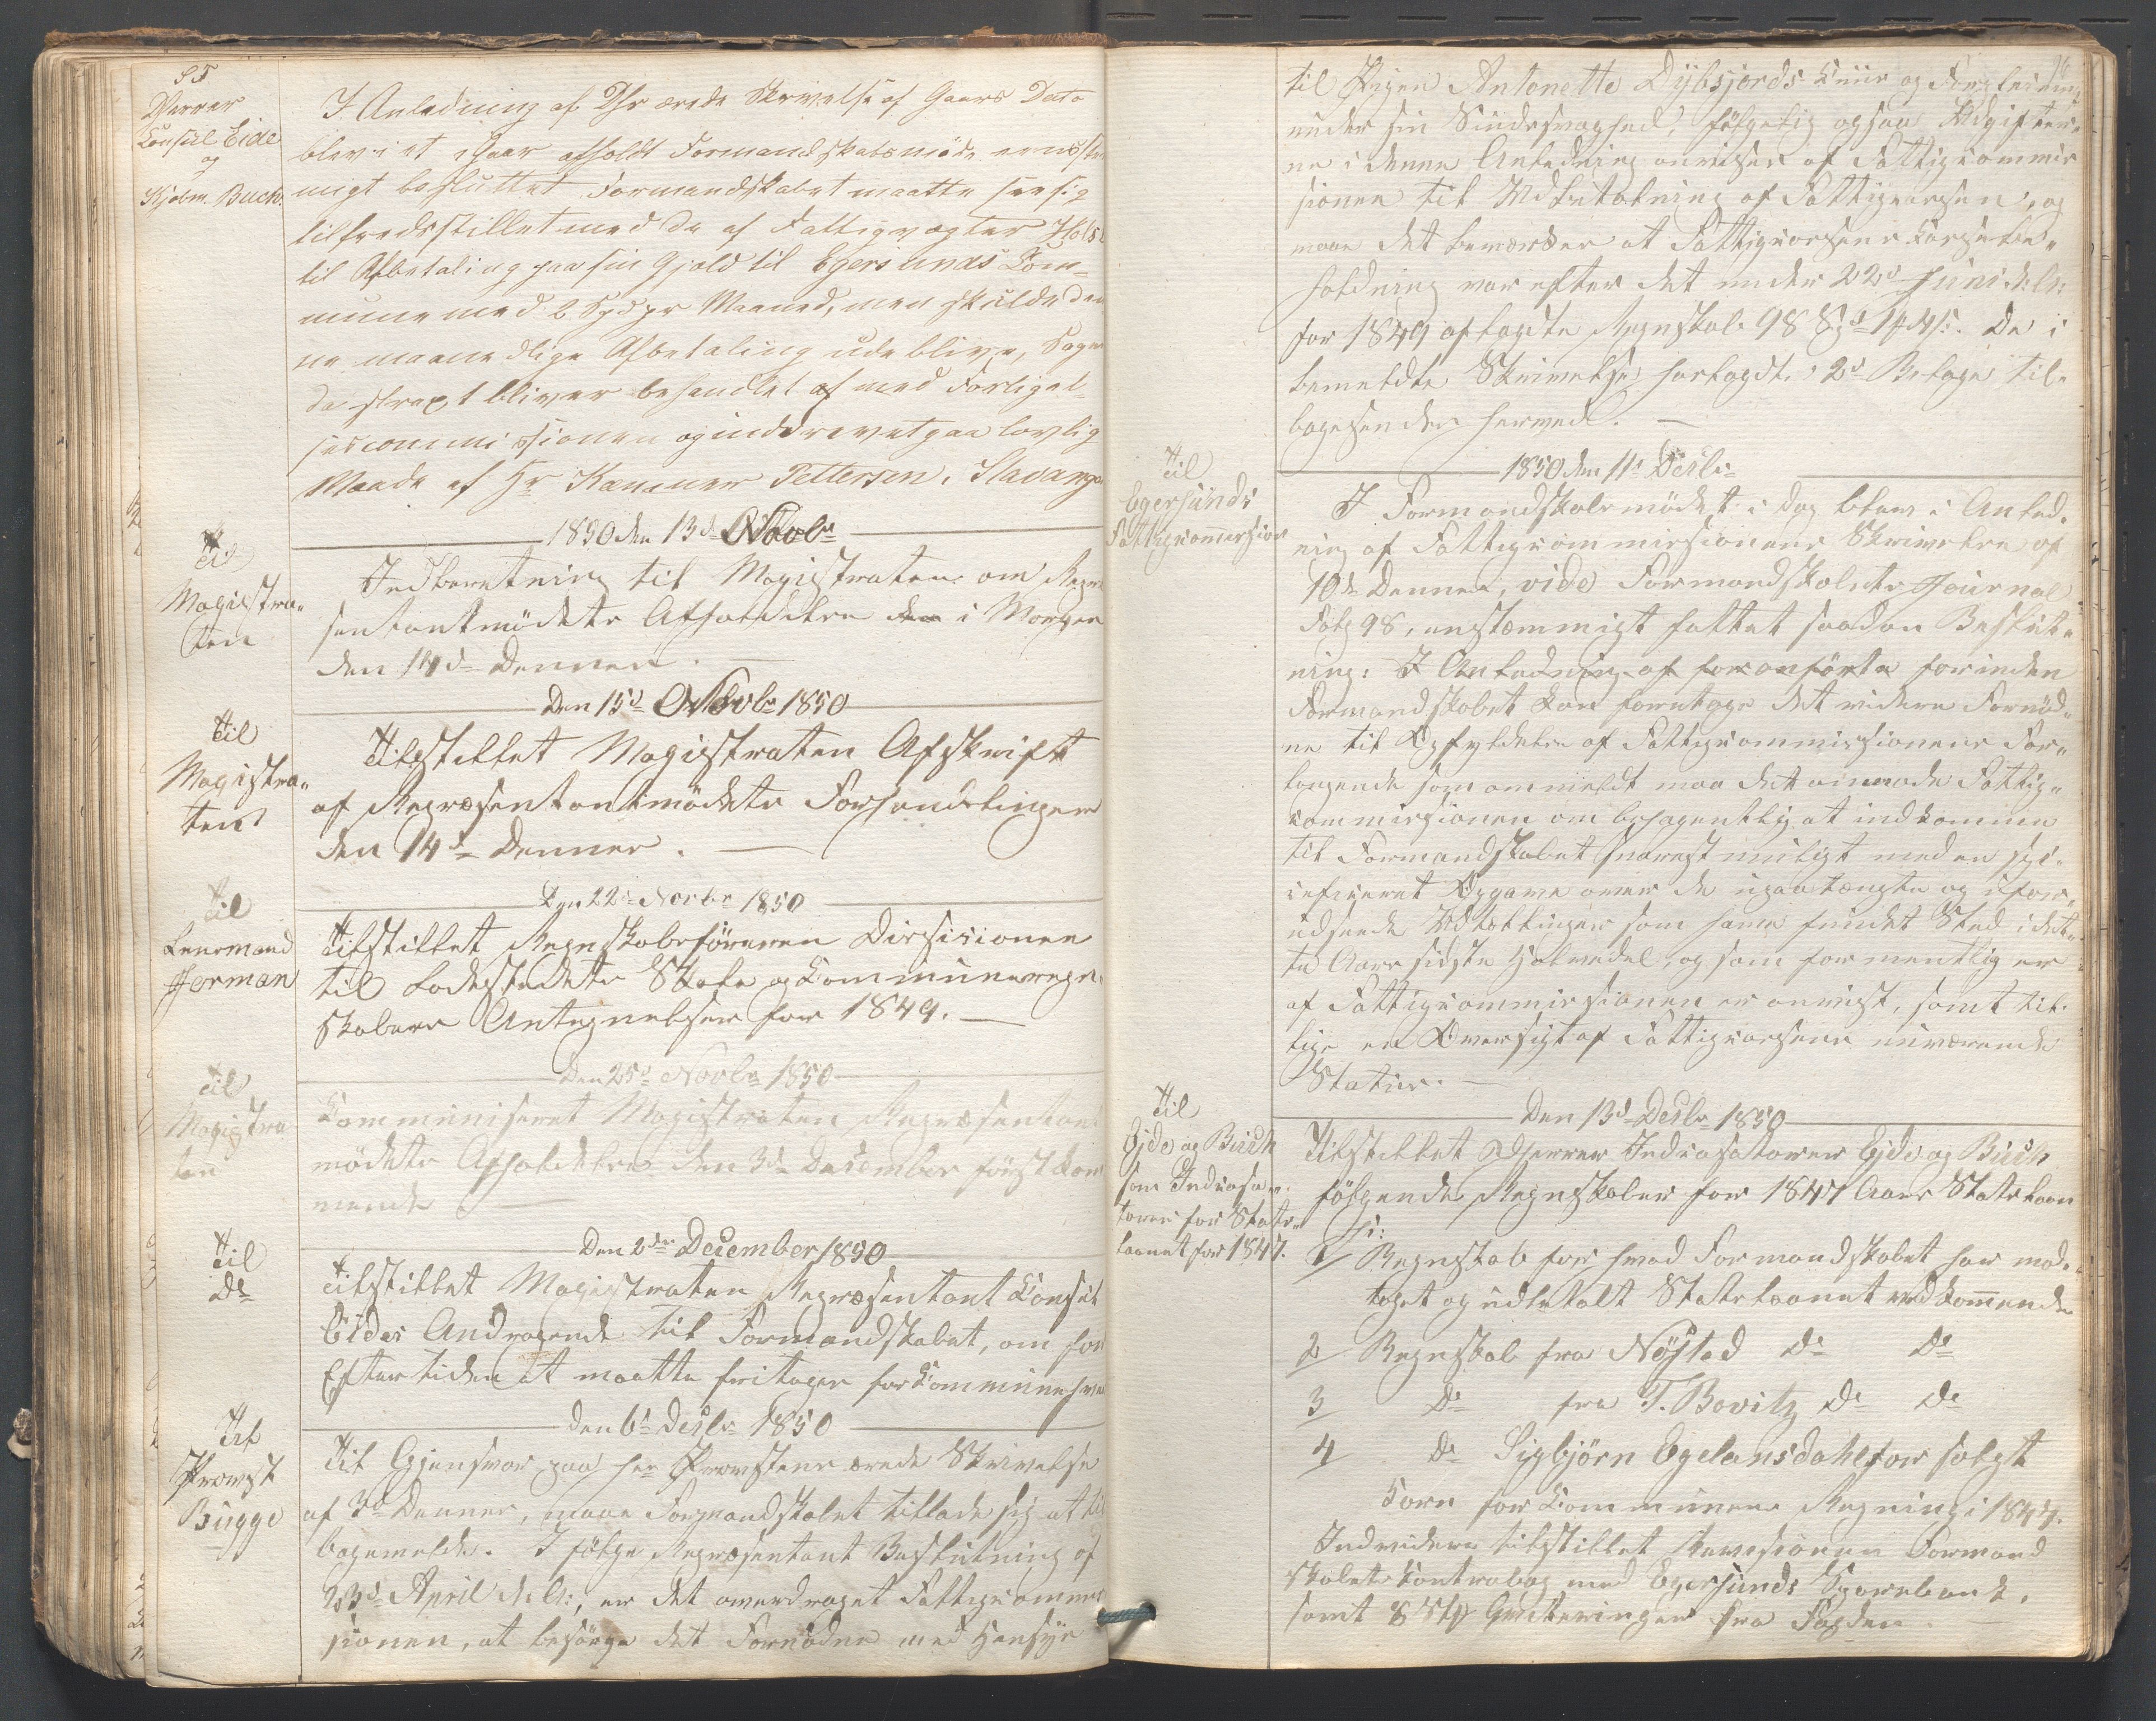 95
Herrer
Consul Eide
og
Kjøbm. Buch.
I Anledning af DHr ærede Skrivelse af Gaars Dato
blev i et igaar afholdt Formandskabsmöde eenstem
migt besluttet Formandskabet maatte see sig
tilfredsstillet med de af Fattigvægter
til Afbetaling paa sin Gjæld til Egersunds Com-
mune med 2 Spd pr Maaned, men skulde den
ne maanedlige Afbetaling udeblive, Sagen
da strax bliver behandlet af med Forligel-
sescommissionen og inddrevet paa lovlig
Maade af Hr Kæmner Pettersen, Stavanger
1850 den 13d Novbr
Til
Magistra-
ten
Indberetning til Magistraten om Repræ
sentantmödets Afholdelse den i Morgen
den 14d Dennes. —
Den 15d Novbr 1850
Til
Magistra-
ten
Tilstillet Magistraten Afskrift
af Repræsentantmödets Forhandlinger
den 14d Dennes. —
Den 22d Novbr 1850
Til
Leensmand
Jerman
Tilstillet Regnskabsföreren Decisionen
til Ladestedets Skole og Communeregn
skabers Antegnelser for 1849. —
Den 25d Novbr 1850
Til
Magistra
ten
Communiseret Magistraten Repræsentant
mödets Afholdelse den 3d December först kom
mende —
Den 2den December 1850
Til
Do
Tilstillet Magistraten Repræsentant Consul
Eides Andragende til Formandskabet, om for
Eftertiden at maatte fritages for Commune
Den 6d Decbr 1850
Til
Provst
Bugge
Til Gjensvar paa Hr Provstens ærede Skrivelse
af 3d Dennes, maae Formandskabet tillade sig at til
bagemelde. I fölge Repræsentant Beslutning af
23d April d: A:, er det overdraget Fattigcommis
sionen, at besörge det Fornödne med Hensyn
96
til Pigen Antonette Dybsjords Cuur og Forpleining
under sin Sindssvaghed, fölgelig ogsaa Udgifter-
ne i denne Anledning anvises af Fattigcommis
sionen til Udbetalning af Fattigcassen, og
maa det bemærkes at Fattigcassens Cassebe-
holdning var efter det under 22d Juni d: A:
for 1849 aflagte Regnskab 98 Spd 14 s. De i
bemeldte Skrivelse fortagdte 2d Belage til-
bagesendes hermed. —
1850 den 11d Decbr
Til
Egersunds
Fattigcommission
I Formandskabsmödet i Dag blev i Anled-
ning af Fattigcommissionens Skrivelse af
10de Dennes, vide Formandskabets Journal
Fol 98, enstemmigt fattet saadan Beslut-
ning: I Anledning af foranförte forinden
Formandskabet kan foretage det videre Fornöd-
ne til Opfyldelse af Fattigcommissionens For-
langende som ommeldt maa det anmode Fattig-
commissionen om behagentlig at indkomme
til Formandskabet snarest muligt med en spe-
cificeret Opgave over de upaatænkte og ufor-
udseede Udtællinger som have fundet Sted i det-
te Aars sidste Halvedel, og som formentlig er
af Fattigcommissionen er anvist, samt til-
lige en Oversigt af Fattigcassens nuværende
Status. —
Den 13d Decbr 1850
Til
Ejde og Buch
som Indcassa-
torer for Stats-
laanet for 1847.
Tilstillet DHerrer Indcassatorer Ejde og Buch
fölgende Regnskaber for 1847 Aars Statslaan
s:
1/ Regnskab for hvad Formandskabet har mod-
taget og udbetalt Statslaanet vedkommende
2/ Regnskab fra Nöstad Do Do
3/ Do fra T. Bovitz Do Do
4/ Do Sigbjörn Egelansdahl for solgt
Korn for Communens Regning i 1847.
Endvidere tilstillet Revisionen Formand
skabets Contrabog med Egersunds Sparebank,
samt 8 Stk Qvitteringer fra Fogden. —